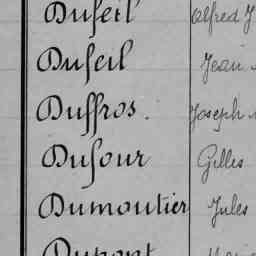 Dufeil Alfred J
Dufeil Jean
Duffros. Joseph
Dufour Gilles
Dumoutier Jules
Dupont